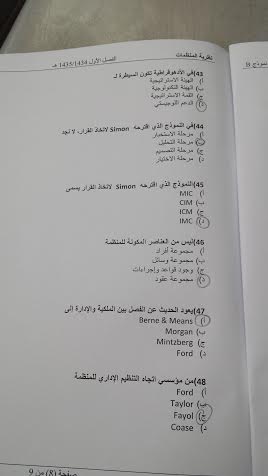 نظرية المنظمات
الفصل الأول 1435/1434 هـ
نموذج B
43)في الأدهوقراطية تكون السيطرة لـ
أ) الهيئة الاستراتيجية
ب) الهيئة التكنولوجية
ج) القمة الاستراتيجية
د) الدعم اللوجيستي
44)في النموذج الذي اقترحه Simon لاتخاذ القرار، لا نجد
أ) مرحلة الاستخبار
ب) مرحلة التحليل
ج) مرحلة التصميم
د) مرحلة الاختيار
45)النموذج الذي اقترحه Simon لاتخاذ القرار يسمى
أ) MIC
ب) CIM
ج) ICM
د) IMC
46)ليس من العناصر المكونة للمنظمة
أ) مجموعة أفراد
ب) مجموعة وسائل
ج) وجود قواعد وإجراءات
د) مجموعة عقود
47)يعود الحديث عن الفصل بين الملكية والإدارة إلى
أ) Berne & Means
ب) Morgan
ج) Mintzberg
د) Ford
48)من مؤسسي اتجاه التنظيم الإداري للمنظمة
أ) Ford
ب) Taylor
ج) Fayol
د) Coase
صفحة (8) من 9